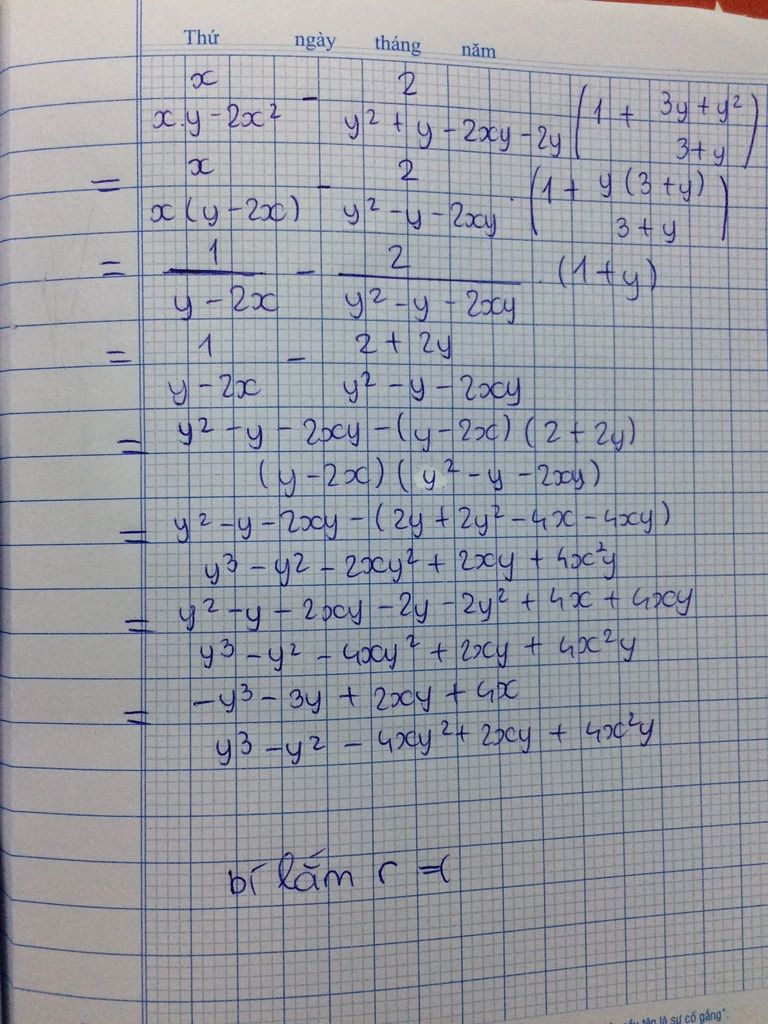 Thứ ngày tháng năm
x/(x.y - 2x²) - 2/(y² + y - 2xy - 2y) (1 + (3y + y²)/(3 + y))
= x/(x(y - 2x)) - 2/(y² - y - 2xy) . (1 + y(3 + y)/(3 + y))
= 1/(y - 2x) - 2/(y² - y - 2xy) . (1 + y)
= 1/(y - 2x) - (2 + 2y)/(y² - y - 2xy)
= (y² - y - 2xy - (y - 2x)(2 + 2y))/((y - 2x)(y² - y - 2xy))
= (y² - y - 2xy - (2y + 2y² - 4x - 4xy))/(y³ - y² - 2xy² + 2xy + 4x²y)
= (y² - y - 2xy - 2y - 2y² + 4x + 4xy)/(y³ - y² - 4xy² + 2xy + 4x²y)
= (-y³ - 3y + 2xy + 4x)/(y³ - y² - 4xy² + 2xy + 4x²y)
bí lắm r =(
là sự cố gắng".